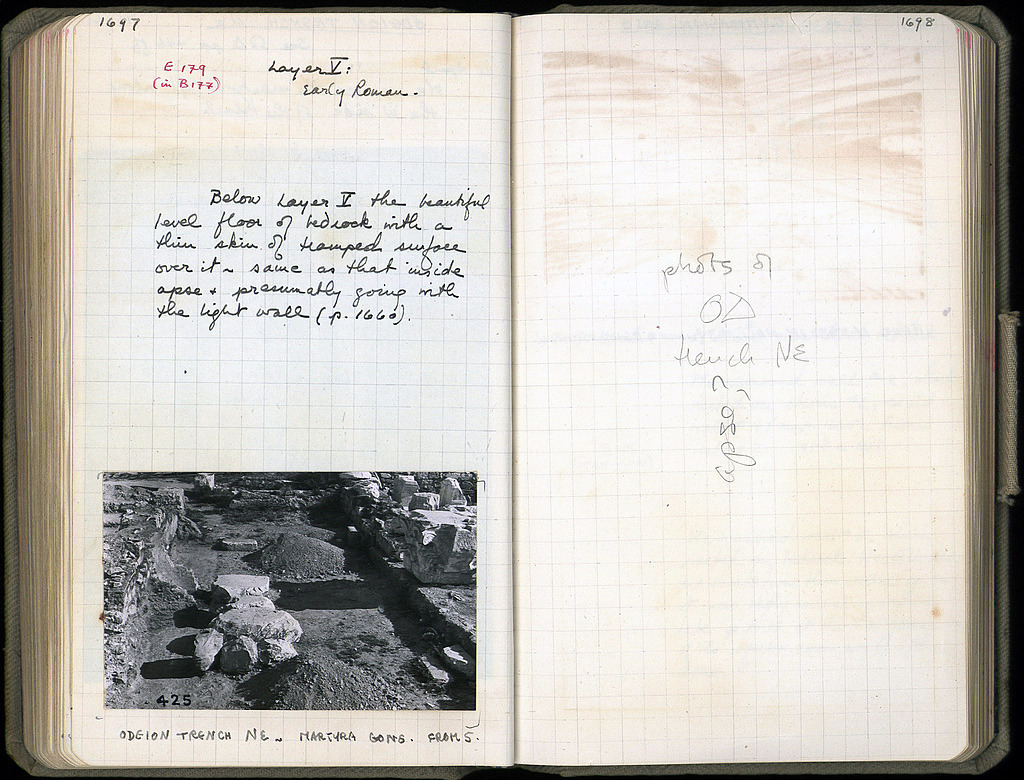 1697
E 179
(in B177)
Layer V:
Early Roman.
Below Layer V the beautiful
level floor of bedrock with a
thin skin of tramped surface
over it ~ same as that inside
apse + presumably going with
the light wall (p. 1660).
425
ODEION TRENCH NE ~ MARTYRA GONE. FROM S.
1698
photos of
OD
trench NE
apse?